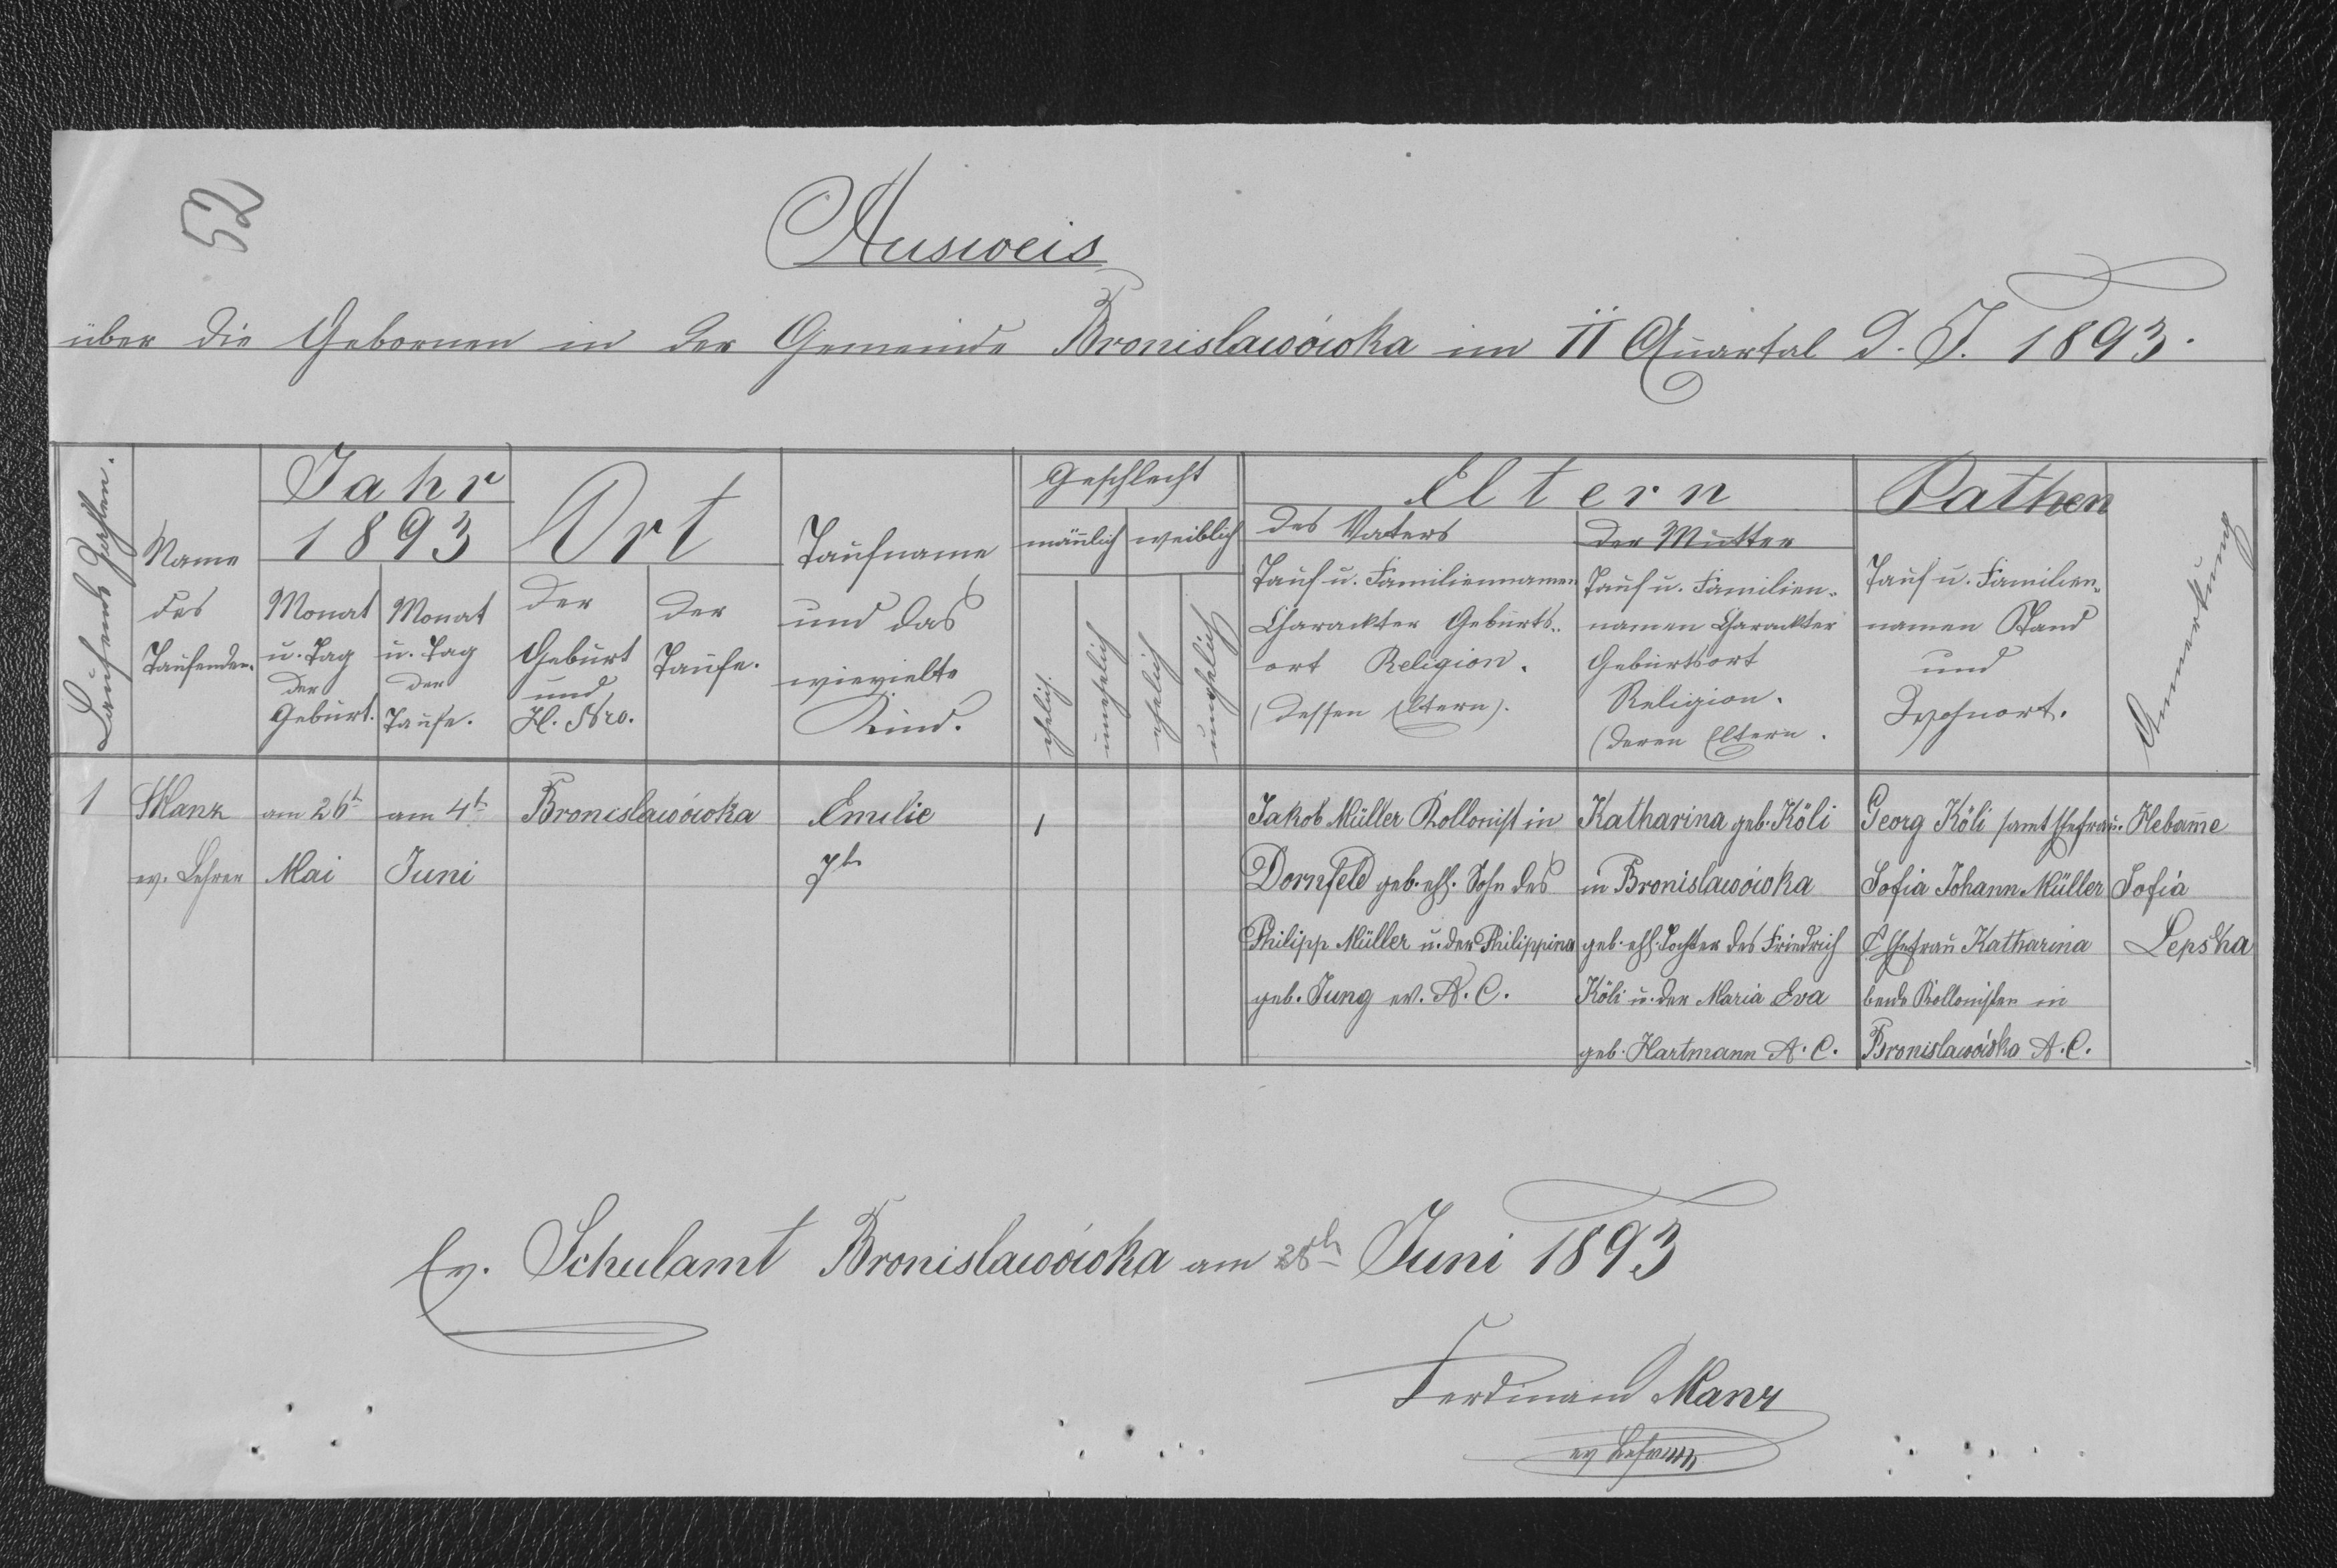 52
Ausweis
über die Gebornen in der Gemeinde Bronislawówka im II Quartal d. J. 1893.
Laufende Zahlen.
Name
des
Taufenden.
Jahr
1893
Monat
u. Tag
der
Geburt.
Monat
u. Tag
der
Taufe.
Ort
der
Geburt
und
H. Nro.
der
Taufe.
Taufname
und das
wievielte
Kind.
Geschlecht
mänlich
weiblich
ehelich.
unehelich
ehelich
unehelich
Eltern
des Vaters
Tauf u. Familiennamen
Charackter Geburts-
ort Religion.
(dessen Eltern).
der Mutter
Tauf u. Familien-
namen Charackter
Geburtsort
Religion.
(deren Eltern.
Pathen
Tauf u. Familien-
namen Stand
und
Wohnort.
Anmerkung
1
Manz
ev. Lehrer
am 26t
Mai
am 4t
Juni
Bronislawówka
Emilie
7t
1
Jakob Müller Kollonist in
Dornfeld geb. ehl. Sohn des
Philipp Müller u. der Philippina
geb. Jung ev. A. C.
Katharina geb. Köli
in Bronislawówka
geb. ehl. Tochter des Friedrich
Köli u. der Maria Eva
geb. Hartmann A. C.
Georg Köli samt Ehefrau
Sofia Johann Müller
Ehefrau Katharina
beide Kollonisten in
Bronislawówka A. C.
Hebame
Sofia
Lepska
Ev. Schulamt Bronislawówka am 28th Juni 1893
Ferdinand Manz
ev Lehrer